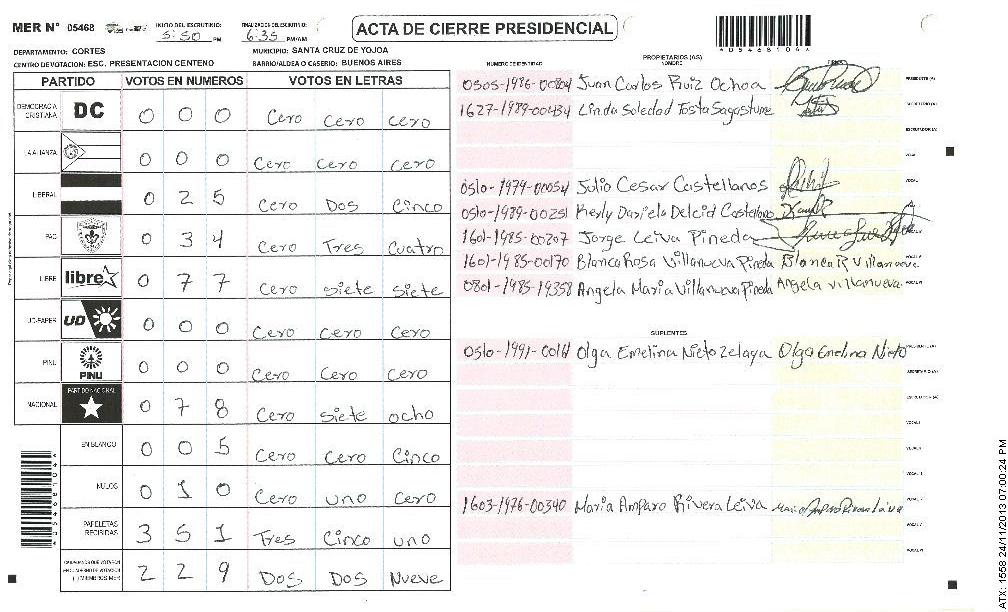 MER N° 05468
INICIO DEL ESCRUTINIO: 5:50 PM
FINALIZACION DEL ESCRUTINIO: 6:35 PM/AM
ACTA DE CIERRE PRESIDENCIAL
DEPARTAMENTO: CORTES
MUNICIPIO: SANTA CRUZ DE YOJOA
CENTRO DE VOTACION: ESC. PRESENTACION CENTENO
BARRIO/ALDEA O CASERIO: BUENOS AIRES
PARTIDO VOTOS EN NUMEROS VOTOS EN LETRAS
DEMOCRACIA CRISTIANA DC 0 0 0 Cero Cero Cero
LA ALIANZA 0 0 0 Cero Cero Cero
LIBERAL 0 2 5 Cero Dos Cinco
PAC 0 3 4 Cero Tres Cuatro
LIBRE libre 0 7 7 Cero siete siete
UD-FAPER UD 0 0 0 Cero Cero Cero
PINU PINU 0 0 0 Cero Cero Cero
NACIONAL PARTIDO NACIONAL 0 7 8 Cero siete ocho
EN BLANCO 0 0 5 Cero Cero Cinco
NULOS 0 1 0 Cero uno Cero
PAPELETAS RECIBIDAS 3 5 1 Tres Cinco uno
2 2 9 Dos Dos Nueve
PROPIETARIOS (AS)
NUMERO DE IDENTIDAD NOMBRE FIRMA
0505-1986-00804 Juan Carlos Ruiz Ochoa PRESIDENTE (A)
1627-1989-00434 Linda Soledad Tosta Sagastume SECRETARIO (A)
ESCRUTADOR (A)
VOCAL
0510-1979-00054 Julio Cesar Castellanos
0510-1989-00251 Kerly Daniela Delcid Castellano
1601-1985-00207 Jorge Leiva Pineda
1601-1985-00170 Blanca Rosa Villanueva Pineda Blanca R Villanueva
0801-1985-19358 Angela Maria Villanueva Pineda Angela villanueva
SUPLENTES
Olga Emelina Nieto Zelaya Olga Emelina Nieto PRESIDENTE (A)
SECRETARIO (A)
ESCRUTADOR (A)
1603-1976-00340 Maria Amparo Rivera Leiva
ATX: 1558 24/11/2013 07:00:24 PM